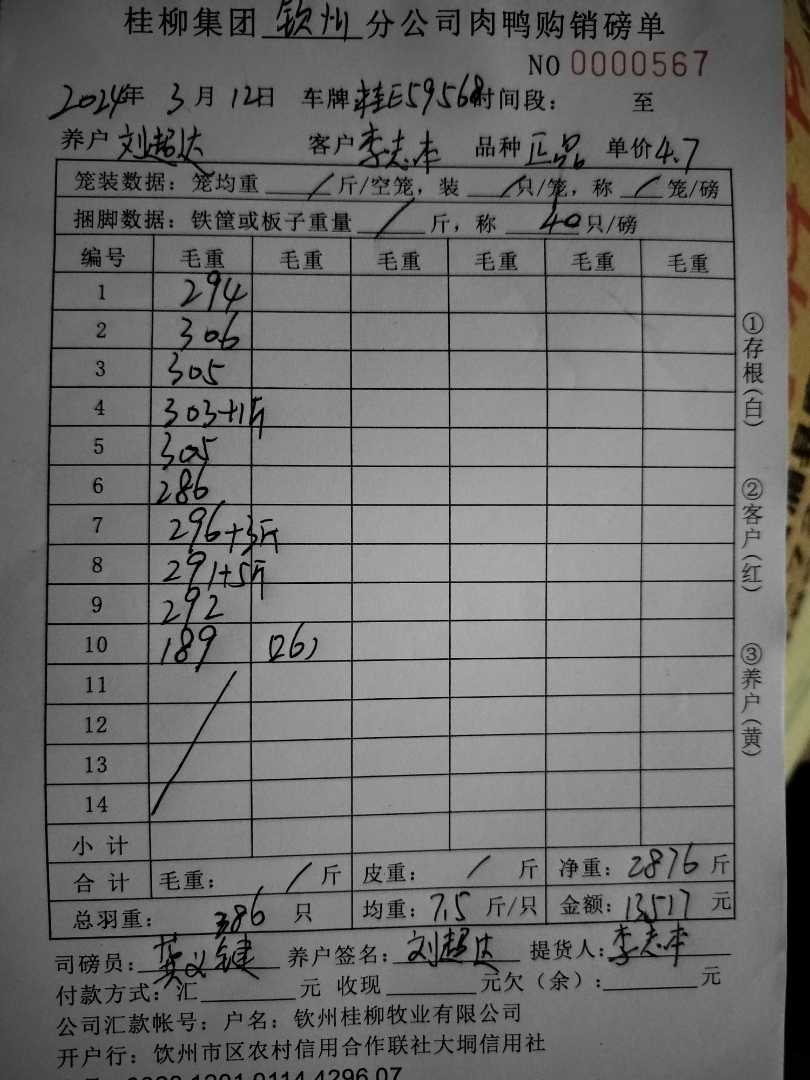 桂柳集团 钦州 分公司肉鸭购销磅单
NO 0000567
2024年 3月12日 车牌桂E59568时间段: 至
养户刘超达 客户李志本 品种正品 单价4.7
笼装数据: 笼均重 / 斤/空笼, 装 / 只/笼, 称 / 笼/磅
捆脚数据: 铁筐或板子重量 / 斤, 称 40 只/磅
编号 毛重 毛重 毛重 毛重 毛重 毛重
1 294
2 306
3 305
4 303+1斤
5 305
6 286
7 296+3斤
8 291+5斤
9 292
10 189 (26)
11
12
13
14
小计
合计 毛重: / 斤 皮重: / 斤 净重: 2876 斤
总羽重: 386 只 均重: 7.5 斤/只 金额: 13517 元
司磅员: 义键 养户签名: 刘超达 提货人: 李志本
付款方式: 汇 元 收现 元欠(余): 元
公司汇款帐号: 户名: 钦州桂柳牧业有限公司
开户行: 钦州市区农村信用合作联社大垌信用社
①存根(白)
②客户(红)
③养户(黄)